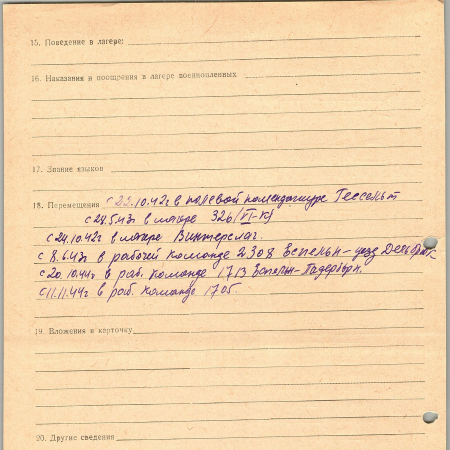 15. Поведение в лагере:
16. Наказания и поощрения в лагере военнопленных
17. Знание языков
18. Перемещения с 22.10.42г в полевой комендатуре Гессенст
с 28.5.43г в лагере 326/VI-К/
с 24.10.42г в лагере Винтерслаг.
с 8.6.43г в рабочей команде 2308 Эспельн - уезд
с 20.10.44г в раб. команде 1713 Эспельн-Падерборн.
с 11.11.44г в раб. команде 1705.
19. Вложения в карточку
20. Другие сведения